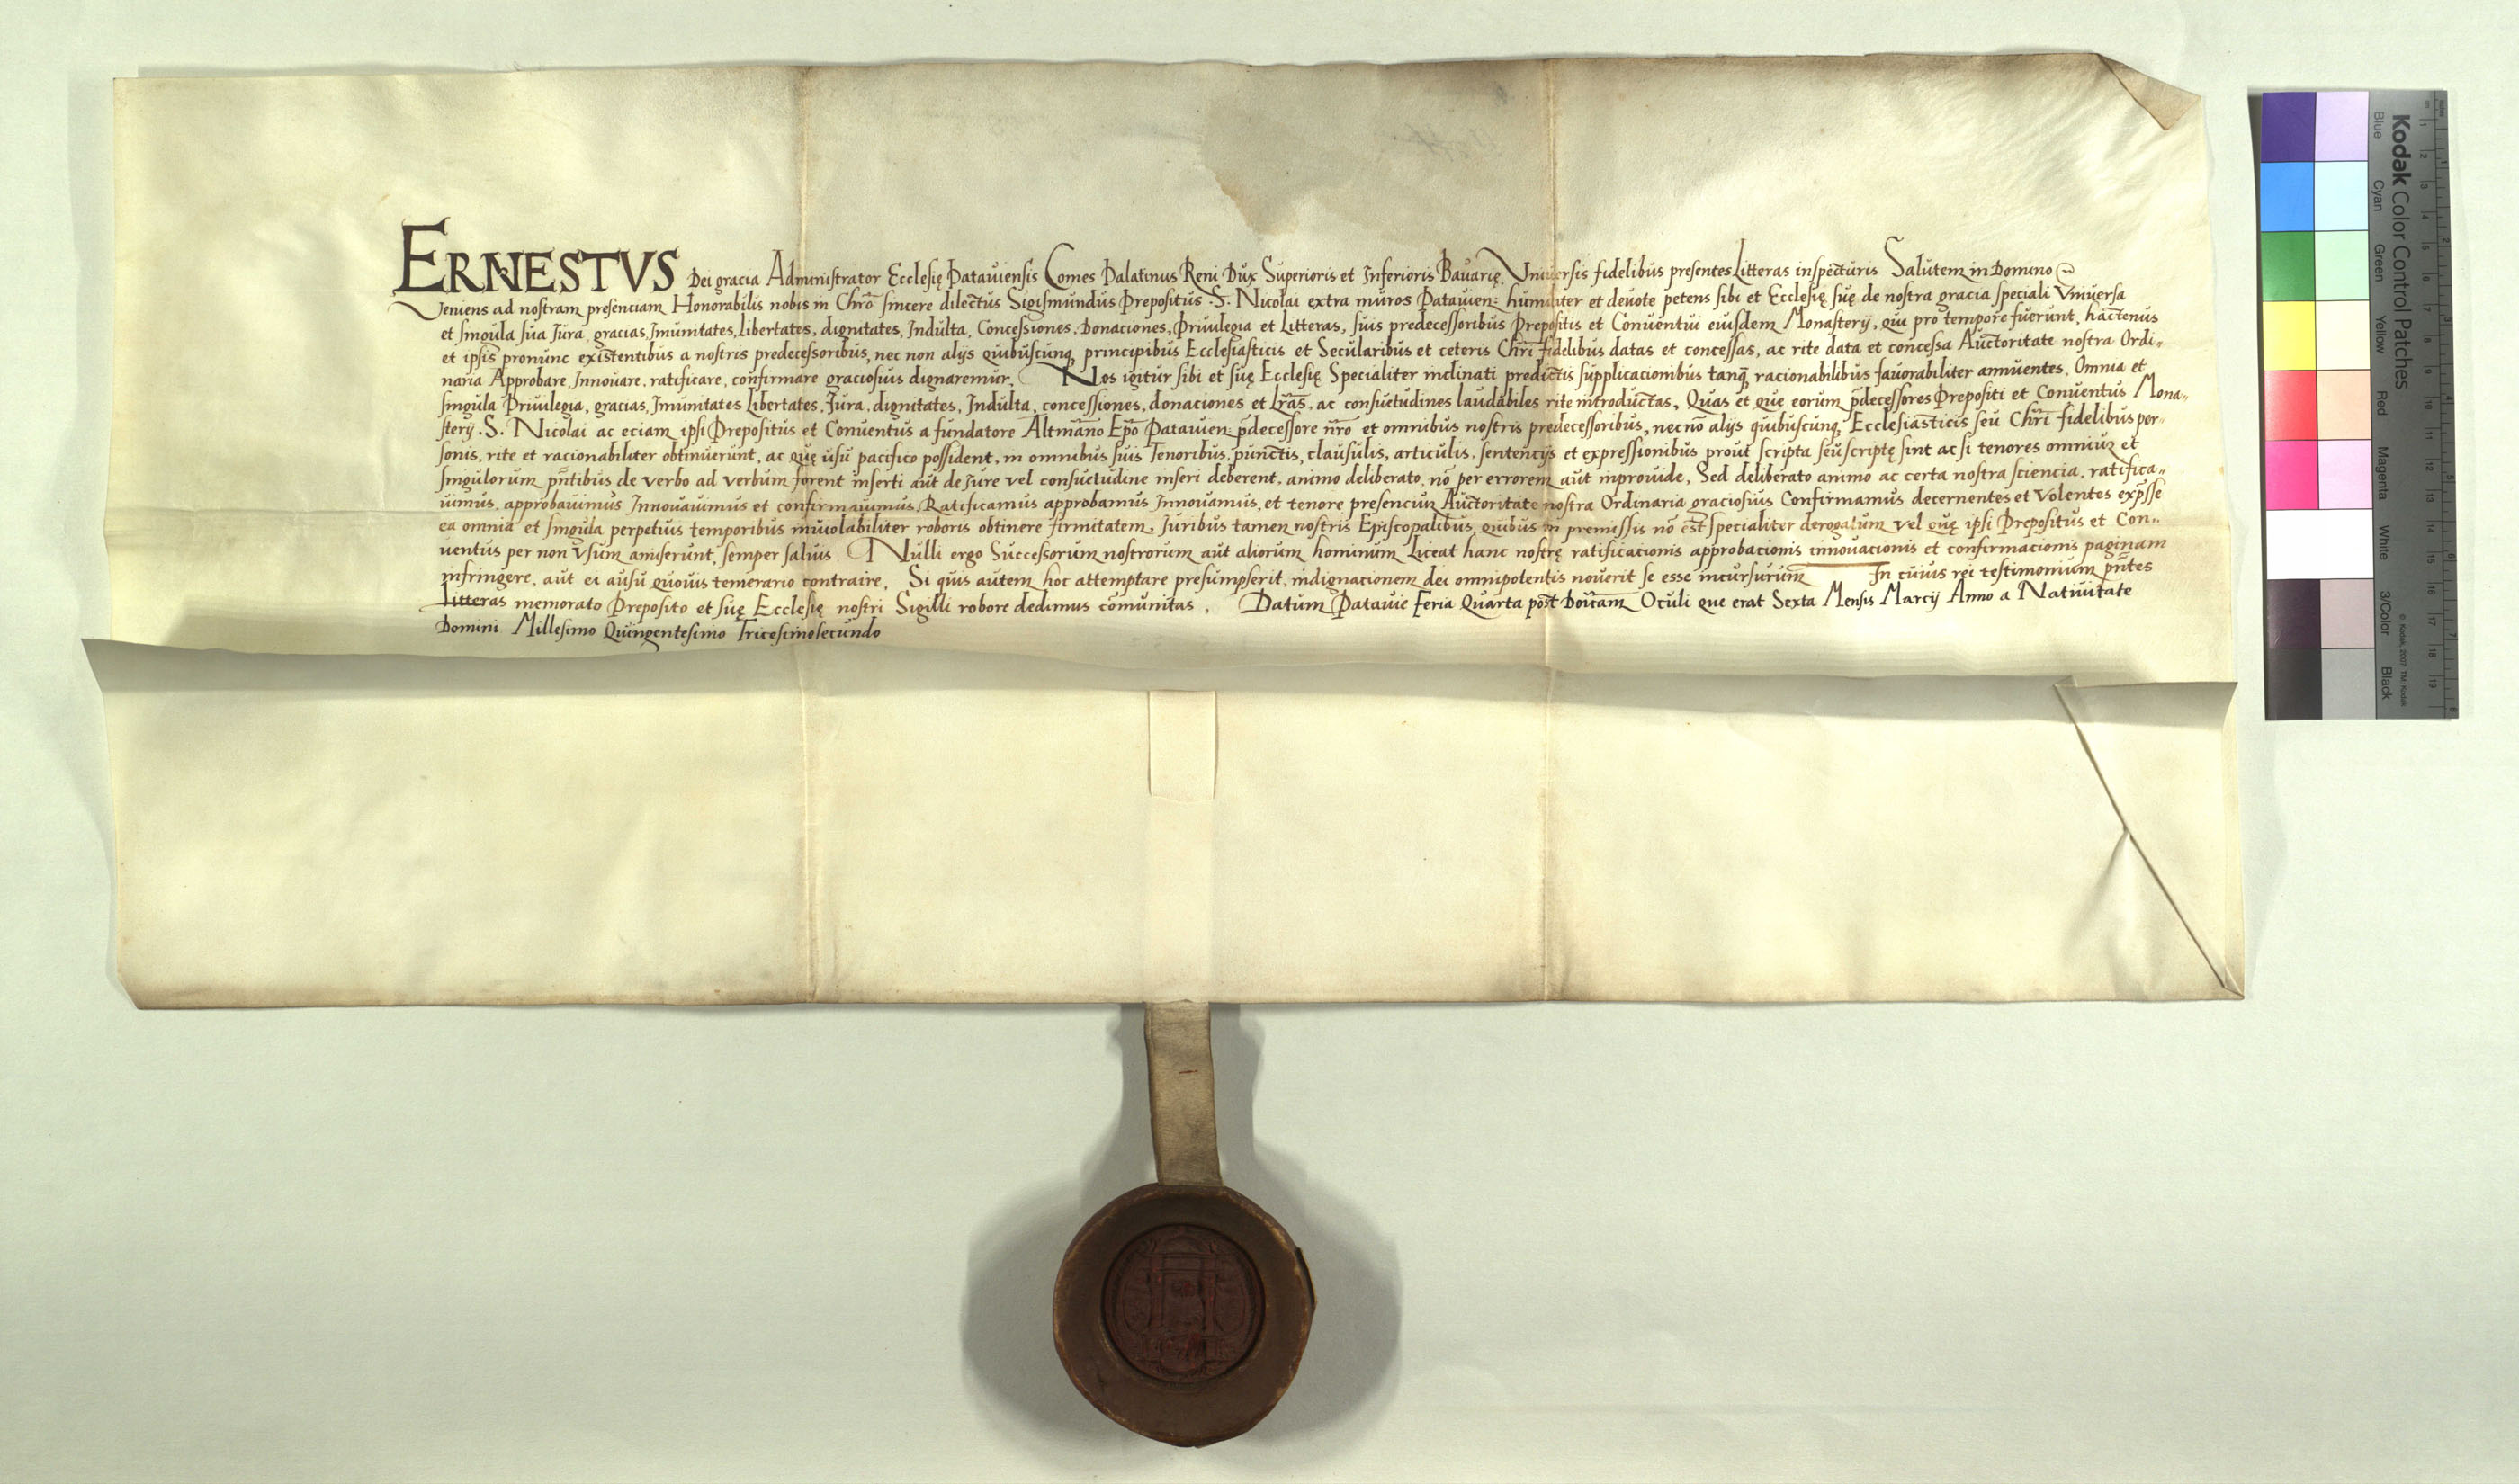 ERNESTVS Dei gracia Administrator Ecclesię Patauiensis Comes Palatinus Reni Dux Superioris et Inferioris Bavarię. Vniuersis fidelibus presentes Litteras inspecturis Salutem in Domino
Veniens ad nostram presenciam Honorabilis nobis in Chrō sincere dilectus Sigismundus Prepositus .S. Nicolai extra muros Patauien: humiliter et deuote petens sibi et Ecclesię suę de nostra gracia speciali Vniuersa
et singula sua Iura, gracias, Imunitates, libertates, dignitates, Indulta, Concessiones, Donaciones, Priuilegia et Litteras, suis predecessoribus Prepositis et Conuentui eiusdem Monasterij, qui pro tempore fuerunt, hactenus
et ipsis pronunc existentibus a nostris predecessoribus, nec non alijs quibuscunq, principibus Ecclesiasticis et Secularibus et ceteris Chri fidelibus datas et concessas, ac rite data et concessa Auctoritate nostra Ordi„
naria Approbare, Innouare, ratificare, confirmare graciosius dignaremur. Nos igitur sibi et suę Ecclesię Specialiter inclinati predictis supplicacionibus tanq̄ racionabilibus fauorabiliter annuentes, Omnia et
singula Priuilegia, gracias, Imunitates Libertates, Iura, dignitates, Indulta, concessiones, donaciones et Lr̄as, ac consuetudines laudabiles rite introductas, Quas et que eorum p̄decessores Prepositi et Conuentus Mona„
sterij .S. Nicolai ac eciam ipsi Prepositus et Conuentus a fundatore Altmāno Ep̄o Patauien p̄decessore nr̄o et omnibus nostris predecessoribus, necnō alijs quibuscunq, Ecclesiasticis seu Chr̄i fidelibus per„
sonis, rite et racionabiliter obtinuerunt, ac quę usu pacifico possident, in omnibus suis Tenoribus, punctis, clausulis, articulis, sentencijs et expressionibus prout scripta seu scriptę sint ac si tenores omnium et
singulorum pn̄tibus de verbo ad verbum forent inserti aut de Iure vel consuetudine inseri deberent, animo deliberato, nō per errorem aut inprouide, Sed deliberato animo ac certa nostra sciencia, ratifica„
uimus, approbauimus Innouauimus et confirmauimus, Ratificamus approbamus Innouamus, et tenore presencium Auctoritate nostra Ordinaria graciosius Confirmamus decernentes et Volentes exp̄sse
ea omnia et singula perpetuis temporibus inuiolabiliter roboris obtinere firmitatem, Iuribus tamen nostris Episcopalibus, quibus in premissis nō est specialiter derogatum vel quę ipsi Prepositus et Con„
uentus per non Vsum amiserunt, semper saluis Nulli ergo Successorum nostrorum aut aliorum hominum Liceat hanc nostrę ratificacionis approbacionis innouacionis et confirmacionis paginam
infringere, aut ei ausu quouis temerario contraire, Si quis autem hoc attemptare presumpserit, indignacionem dei omnipotentis nouerit se esse incursurum In cuius rei testimonium pn̄tes
Litteras memorato Preposito et suę Ecclesię nostri Sigilli robore dedimus cōmunitas, Datum Patauie Feria Quarta post Doīcam Oculi que erat Sexta Mensis Marcij Anno a Natiuitate
Domini Millesimo Quingentesimo Tricesimosecundo
Kodak Color Control Patches
Blue Cyan Green Yellow Red Magenta White 3/Color Black
© Kodak, 2007 TM: Kodak